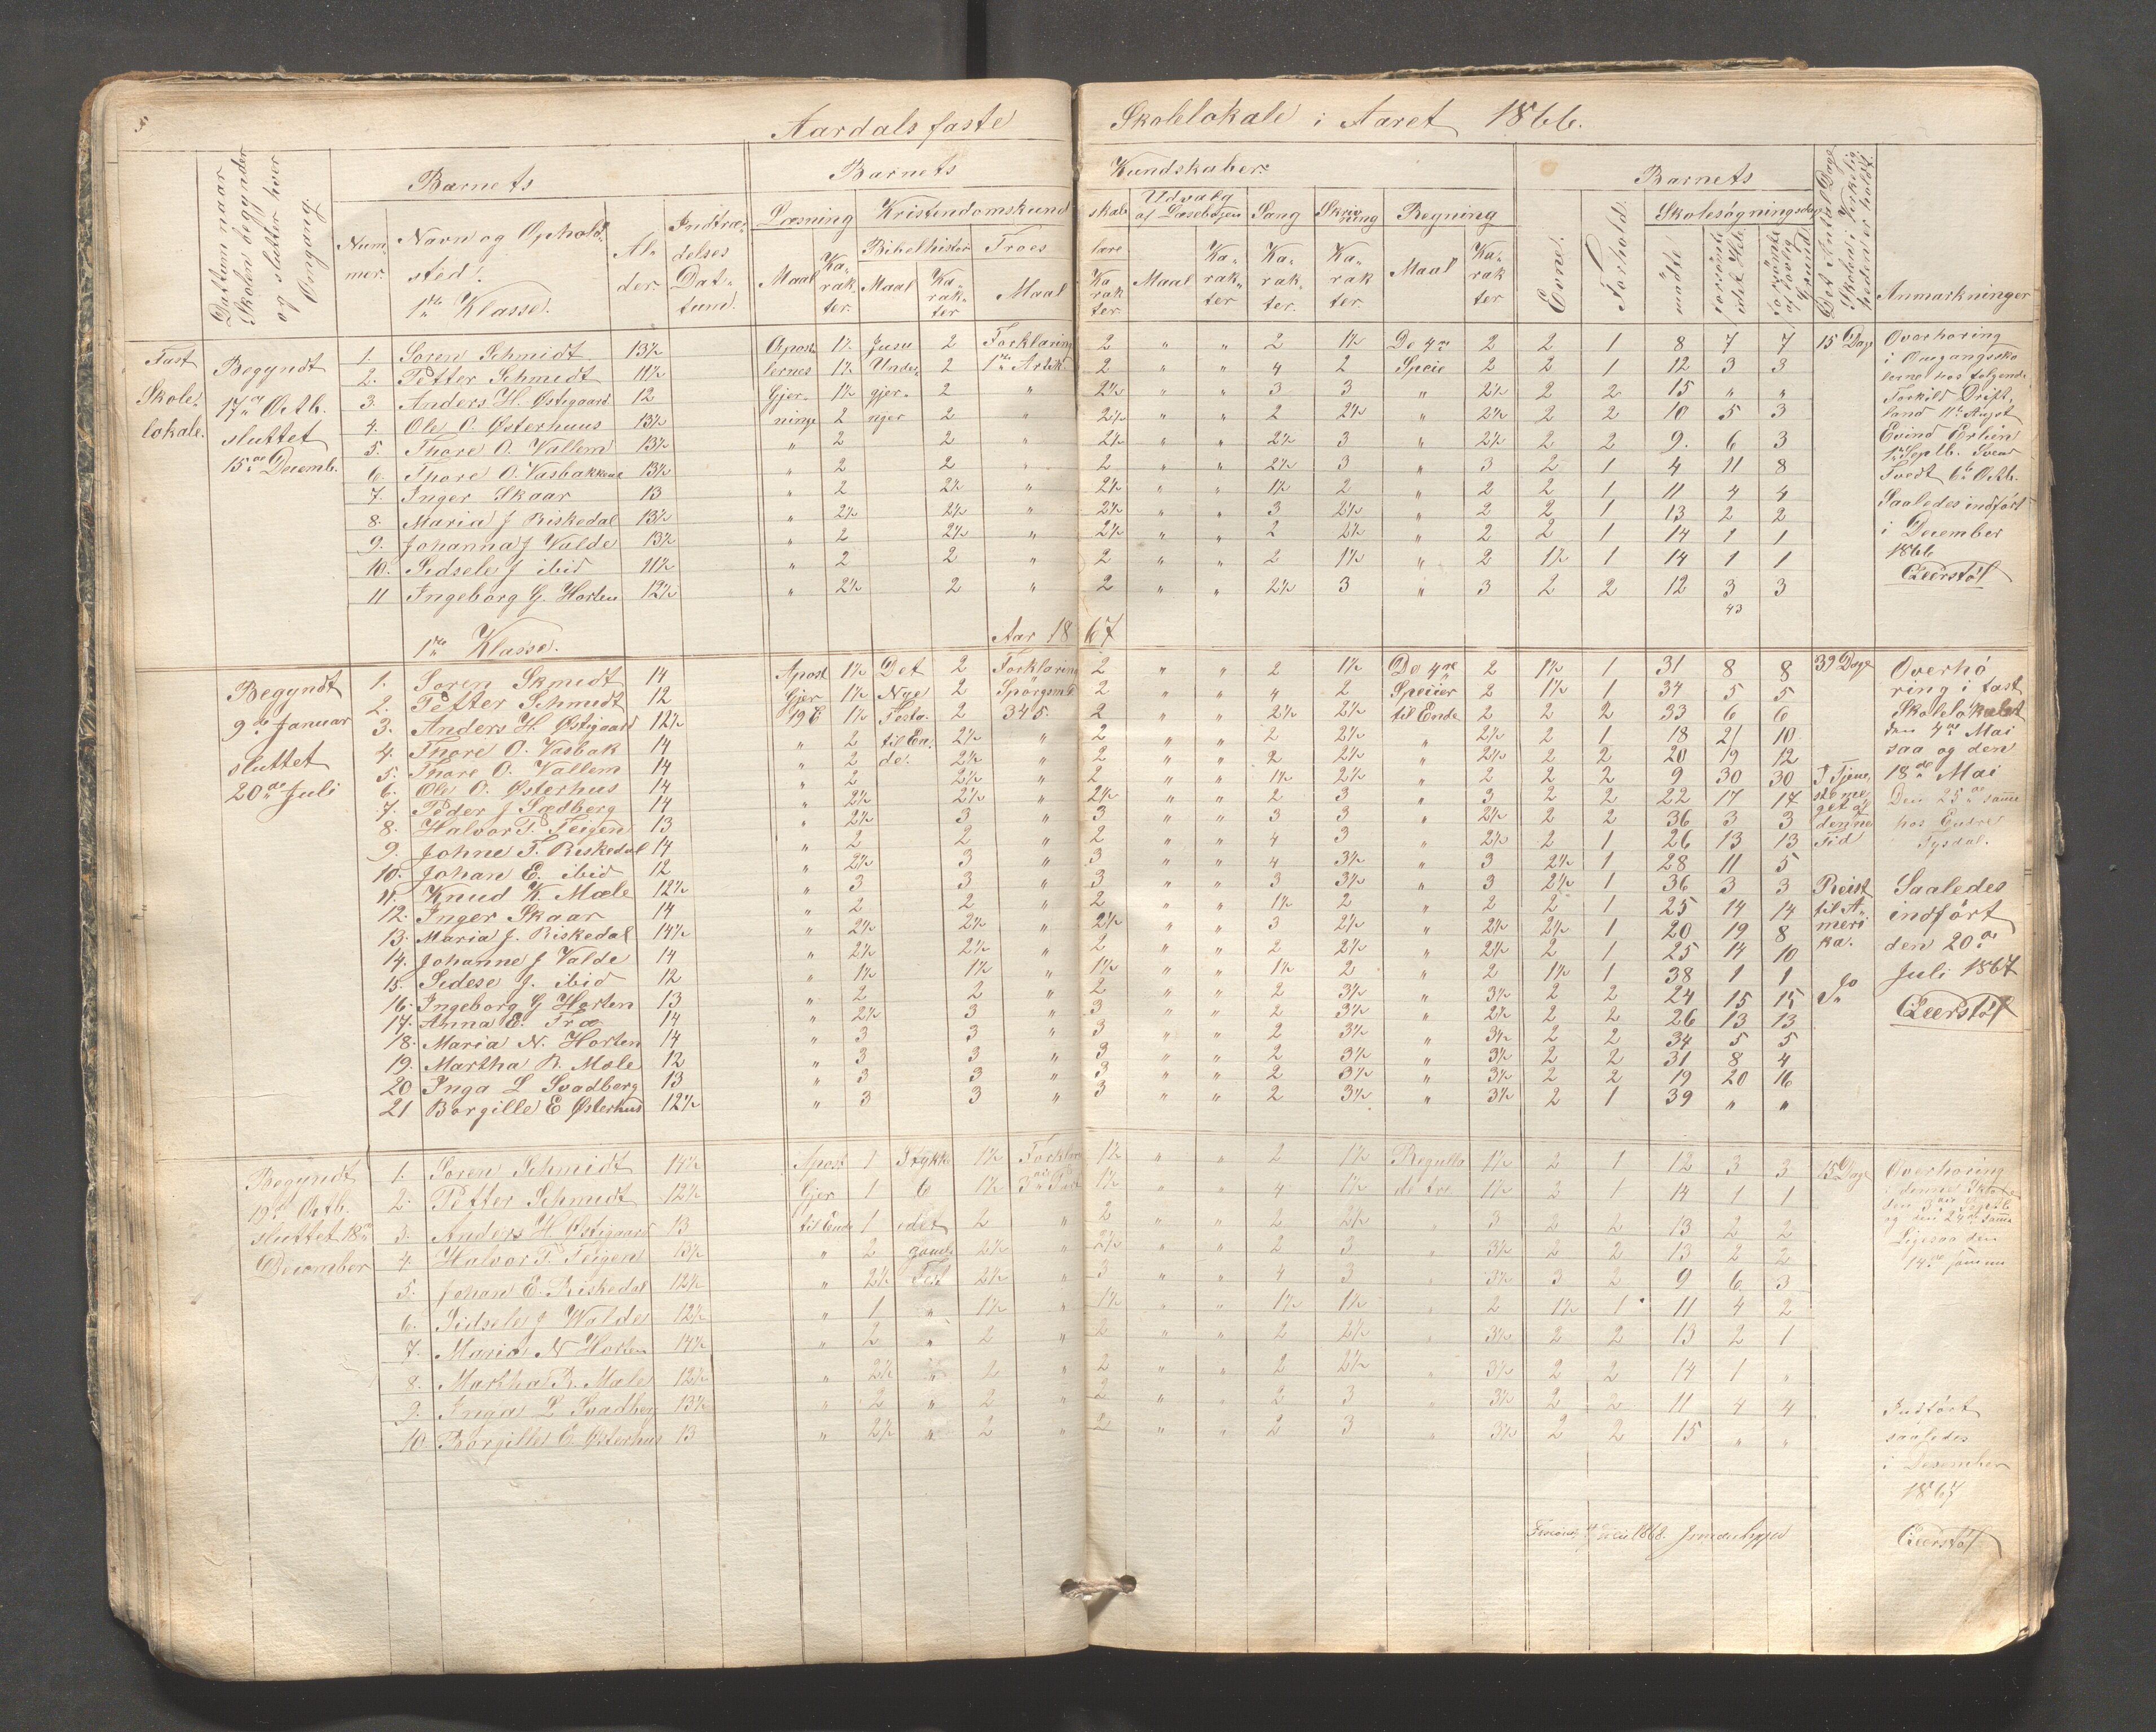 5
Aardals faste Skolelokale i Aaret 1866.
Datum naar Skolen begynder og slutter hver Omgang.
Barnets
Barnets Kundskaber
Barnets
Nummer. Navn og Opholdsted. Alder Indtrædelses Datum.
Læsning Kristendomskundskab Udvalg af Læsebogen Sang Skrivning Regning
Evne. Forhold. Skolesøgningsdage
Bibelhistor Troeslære
Maal Karakter. Maal Karakter Maal Karakter. Maal Karakter Karakter. Karakter. Maal Karakter
mødte forsømte det Hele forsømte af lovlig Grund
Det Antal Dage Skolen i Virkeligheden er holdt.
Anmærkninger
1ste Klasse.
Fast Skolelokale.
Begyndt 17de Octb. sluttet 15de Decemb.
1. Soren Schmidt 13½ Apost 1½ Jesu 2 Forklaring 2 " " 2 1½ De 4re 2 2 1 8 7 7 15 Dage
2. Petter Schmidt 11½ lernes 1½ Under 2 1ste Artik. 2 " " 4 2 Speie 2 2 1 12 3 3
3. Anders H. Østigaard 12 Gjer- 1½ gjer- 2 " 2½ " " 3 3 " 2½ 2 2 15 " "
4. Ole O. Østerhuus 13½ ninge 2 nger 2 " 2½ " " 2 2½ " 2½ 2 2 10 5 3
5. Thore O. Vallem 13½ " 2 2 " 2½ " " 2½ 3 " 2½ 2 2 9. 6 3
6. Thore O. Vasbakken 13½ " 2 2 " 2 " " 2½ 3 " 3 2 1 4 11 8
7. Inger Skaar 13 " 2 2½ " 2½ " " 1½ 2 " 2 2 1 11 4 4
8. Maria J Riskedal 13½ " 2½ 2½ " 2½ " " 3 2½ " 2 2 1 13 2 2
9. Johanna J Valde 13½ " 2 2½ " 2½ " " 2 2½ " 2 2 1 14 1 1
10. Sidsele J ibid 11½ " 2 2 " 2 " " 2 1½ " 2 1½ 1 14 1 1
11 Ingeborg G. Horten 12½ " 2½ 2 " 2 " " 2½ 3 " 3 2 2 12 3 3
43
Overhøring
i Omgangssko
lerne hos følgende
Torkild Drift
land 11te August
Eivind Erlien
1ste Septb. Svend
Tvedt 6te Octb.
Saaledes indført
i December
1866
Geerstøl
1ste Klasse. Aar 1867
Begyndt 9de Januar sluttet 20de Juli
1. Soren Skmidt 14 Apost 1½ Det 2 Forklaring 2 " " 2 1½ De 4re 2 1½ 1 31 8 8 39 Dage
2. Petter Schmidt 12 Gjer 1½ Nye 2 Spörgsmaal 2 " " 4 2 Speiier 2 1½ 1 34 5 5
3. Anders H. Østigaard 12½ 196 1½ Testa. 2 345. 2 " " 2½ 2½ til Ende 2 2 2 33 6 6
4. Thore O. Vasbak 14 " 2 til En- 2½ " 2 " " 2 2½ " 2½ 2 1 18 21 10
5. Thore O. Vallem 14 " 2 de. 2½ " 2 " " 2 2½ " 2½ 2 2 20 19 12
6. Ole O. Østerhus 14 " 2 2½ " 2 " " 1½ 2½ " 2 2 2 9 30 30
7. Peder J Sædberg 14 " 2½ 2½ " 2½ " " 2 3 " 3 2 2 22 17 17
8. Halvor T. Feigen 13 " 2½ 3 " 3 " " 3 3 " 2½ 2 2 36 3 3
9. Johne T. Riskedal 14 " 2 2 " 2 " " 4 3 " 2½ 2 1 26 13 13
10. Johan E. ibid 12 " 2½ 3 " 3 " " 4 3½ " 3 2½ 1 28 11 5
11. Knud K. Mæle 12½ " 3 3 " 3 " " 3 3½ " 3 2½ 1 36 3 3
12. Inger Skaar 14 " 2 2 " 2 " " 1½ 2 " 2 2 1 25 14 14
13. Maria J. Riskedal 14½ " 2½ 2½ " 2½ " " 3 2½ " 2½ 2½ 1 20 19 8
14. Johanne J Valde 14 " 2½ 2½ " 2 " " 2 2½ " 2½ 2 1 25 14 10
15. Sidese J. ibid 12 " 1½ 1½ " 1½ " " 1½ 2 " 2 1½ 1 38 1 1
16. Ingeborg G Horten 13 " 2 2 " 2 " " 2 3½ " 3½ 2 2 24 15 15
17. Anna E. Træ 14 " 2½ 3 " 3 " " 2 3½ " 2½ 2 2 26 13 13
18. Maria N. Horten 14 " 3 3 " 3 " " 2 3½ " 3½ 2 2 34 5 5
19. Martha R. Mæle 12 " 3 3 " 3 " " 2 3½ " 3½ 2 2 31 8 4
20 Inga L Svadberg 13 " 3 3 " 3 " " 2 3½ " 3½ 2 2 19 20 16
21 Borgille E Østerhus 12½ " 3 3 " 3 " " 2 3½ " 3½ 2 1 39 " "
I Tjene
ste me
get af
denne
Tid
Reist
til A-
meri
ka.
Overhø
ring i fast
Skolelokalet
den 4de Mai
saa og den
18de Mai
Den 25de samme
hos Endre
Tysdal.
Saaledes
indført
den 20de
Juli 1867
Geerstøl
Begyndt 19de Octb. sluttet 18de December
1. Soren Schmidt 14½ Apost 1 Stykke 1½ Forklar 1½ " " 2 1½ Regulla 1½ 2 1 12 3 3 15 Dage
2. Petter Schmidt 12½ Gjer 1 6 1½ 1½ " " 4 1½ de tre 1½ 2 1 14 1 1
3. Anders H. Østigaard 13 til Ende 1 2 " 2 " " 2 2½ " 3 2 2 13 2 2
4. Halvor T. Feigen 13½ " 2 2½ " 2½ " " 2 3 " 3½ 2 2 13 2 2
5. Johan E. Riskedal 12½ " 2½ Test 2½ " 3 " " 4 3 " 3½ 3 2 9 6 3
6. Sidsele J Walde 12½ " 1 " 1½ " 1½ " " 1½ 1½ " 2 1½ 1 11 4 2
7. Maria N Horten 14½ " 2 " 2 " 2 " " 2 2½ " 3½ 2 2 13 2 1
8. Martha R. Mæle 12½ " 2½ " 2 " 2 " " 2 2½ " 3½ 2 2 14 1 "
9. Inga L Svadberg 13½ " 2 " 2 " 2 " " 2 3 " 3½ 2 2 11 4 4
10 Borgille E Østerhus 13 " 2½ " 2 " 2 " " 2 3 " 3½ 2 2 15 " "
Overhøring
og den 24de samme
Ligesaa den
14de samme
Indført
saaledes
i Desember
1867
Geerstøl
1868.